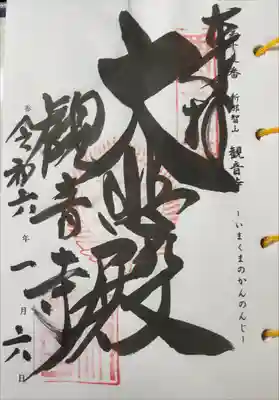 ーいまくまのかんのんじー
番 新那智山 観音寺
奉拝
大悲殿
観音寺
令和六年一月六日